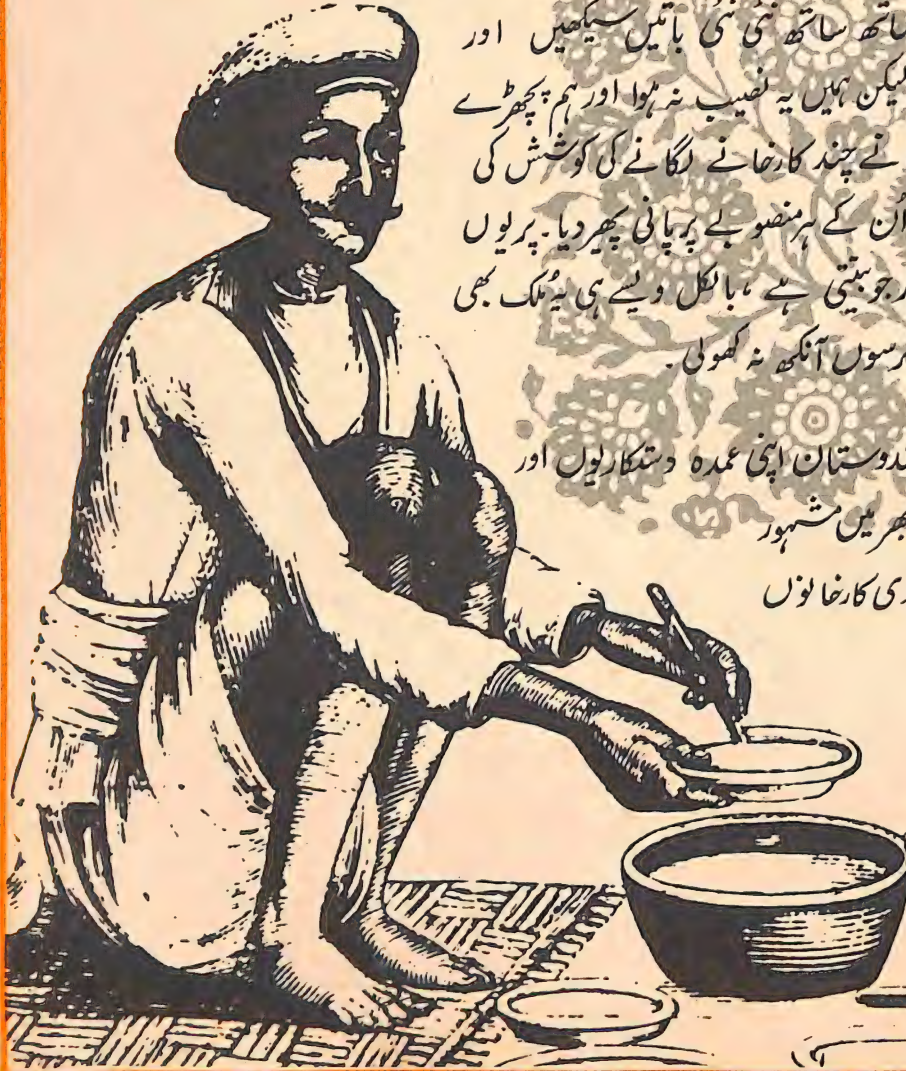 ساتھ ساتھ نئی نئی باتیں سیکھیں اور
لیکن ہمیں یہ نصیب نہ ہوا اور ہم پچھڑے
نے چند کارخانے لگانے کی کوشش کی
اُن کے ہر منصوبے پر پانی پھر دیا۔ پریوں
جو بیتتی ہے، بالکل ویسے ہی یہ مُلک بھی
برسوں آنکھ نہ کھولی۔
ہندوستان اپنی عمدہ دستکاریوں اور
بھر میں مشہور
کارخانوں